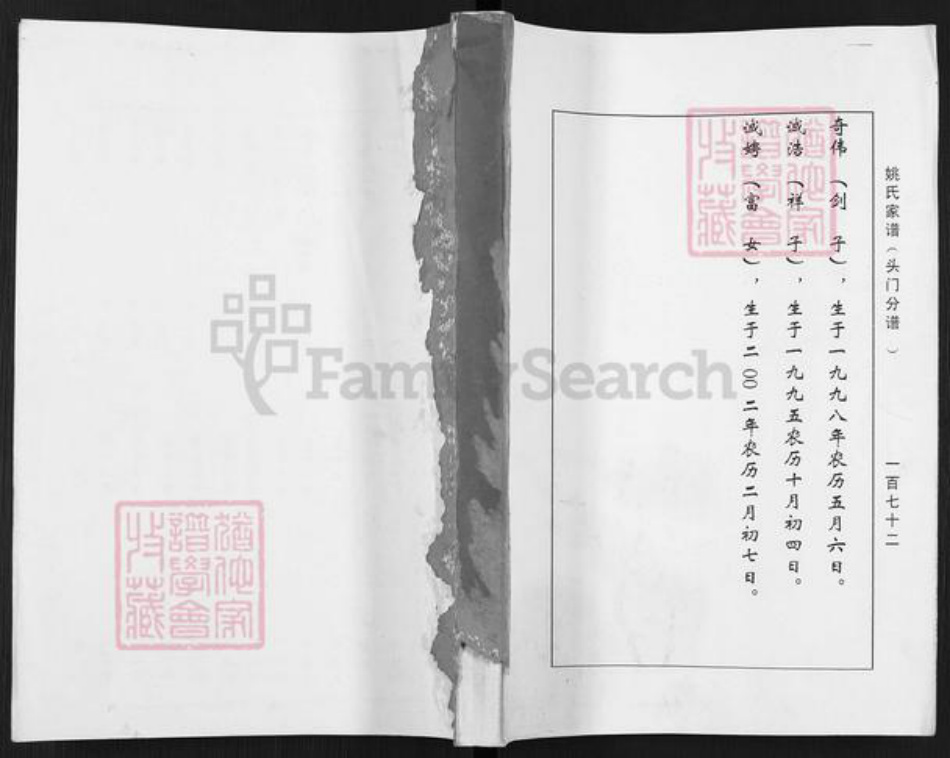 姚氏家谱（头门分谱）
一百七十二
奇伟（剑子），生于一九九八年农历五月六日。
诚浩（祥子），生于一九九五农历十月初四日。
诚娉（富女），生于二00二年农历二月初七日。
猶他家譜學會收藏
猶他家譜學會收藏
FamilySearch